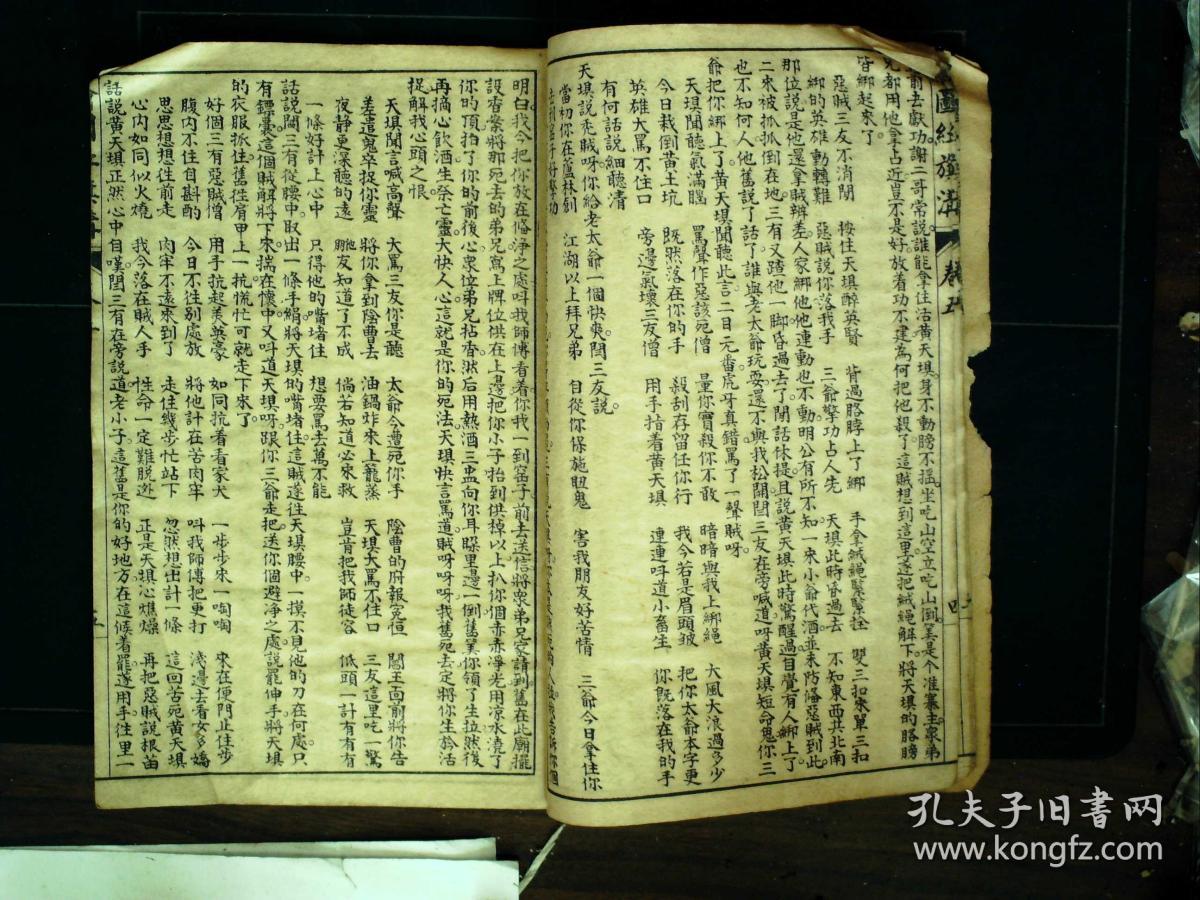 旗溝 卷五
前去獻功謝二哥常說誰能拿住活黃天埧身不動膀不搖坐吃山空立吃山倒算是个准寨主衆弟
兄都用他拿占近豈不是好放着功不建為何把他殺了這賊想到這里遂把絨繩解下將天埧的胳膊
皆綁起來了
惡賊三友不消閑 按住天埧醉英賢 背過胳脖上了綁 手拿絨繩緊緊拴 雙三扣來單三扣
綁的英雄動轉難 惡賊說你落我手 三爺擎功占人先 天埧此時昏過去 不知東西共北南
那位說是他還拿賊辨差人家綁他他連動也不動明公有所不知一來小爺代酒並未防備惡賊到此
二來被抓抓倒在地三有又踏他一脚昏過去了閑話休提且說黃天埧此時驚醒過目覺有人綁上了
也不知何人他舊說了話了誰與老太爺玩耍還不與我松開閏三友在旁喊道呀黃天埧短命鬼你三
爺把你綁上了黃天埧聞聽此言二目元番虎牙真錯罵了一聲賊呀
天埧聞聽氣滿腦 罵聲作惡該宛僧 量你實殺你不敢 暗暗與我上綁繩 大風大浪過多少
今日栽倒黄土坑 既然落在你的手 殺刮存留任你行 我今若是眉頭皱 把你太爺本字更
英雄大罵不住口 旁邊氣壞三友僧 用手指着黄天埧 連連呌道小畜生 你既落在我的手
有何話說細聽清
天埧說秃賊呀你給老太爺一個快爽閏三友說
當初你在蘆林創 江湖以上拜兄弟 自從你保施䏔鬼 害我朋友好苦情 三爺今日拿住你
明白我今把你放在條净之處呌我師傅看着你我一到窑子前去送信將衆弟兄家請到舊在此廟擺
設香案將那死去的弟兄寫上牌位供在上邊把你小子抬到供棹以上扒你個赤赤淨光用凉水澆了
你的頂拍了你的前後心衆位弟兄拈香洪后用熱酒三盃向你耳躱里邊一倒舊算你領了生拉然後
再摘心飲酒生祭亡靈大快人心這就是你的宛法天埧快言罵道賊呀呀呀我舊宛去定將你生鈴活
捉解我心頭之恨
天埧聞言喊高聲 大罵三友你是聽 太爺今遭宛你手 陰曹的府報冤恒 閻王面前將你告
差遣鬼卒捉你靈 將你拿到陰曹去 油鍋炸來上籠蒸 天埧大罵不住口 三友這里吃一驚
夜静更深聽的遠 他朋友知道了不成 倘若知道必來救 豈肯把我師徒容 低頭一計有有有
一條好計上心中 只得他的嘴堵住 想要罵去萬不能
話說閏三有從腰中取出一條手絹將天埧的嘴堵住這賊遂往天埧腰中一摸不見他的刀在何處只
有鏢囊這個賊解將下來揣在懷中又呌道天埧呀跟你三爺走把送你個避净之處說罷伸手將天埧
的衣服抓住舊徃肩甲上一抗慌忙可就走下來了
好個三有惡賊僧 用手抗起美英豪 如同抗着看家犬 一步步來一啕啕 來在便門止住步
腹内不住自斟酌 今日不徃别處放 將他計在苦肉牢 呌我師傅把更打 淺邊去看女多嬌
思思想想徃前走 肉牢不遠來到了 走住幾步忙站下 忽然想出計一條 這回苦宛黄天埧
心内如同似火燒 我今落在賊人手 性命一定難脱逃 正是天埧心燋燥 再把惡賊說根苗
話說黄天埧正然心中自嘆閏三有在旁說道老小子這舊是你的好地方在這候着罷遂用手往里一
孔夫子旧書网
www.kongfz.com